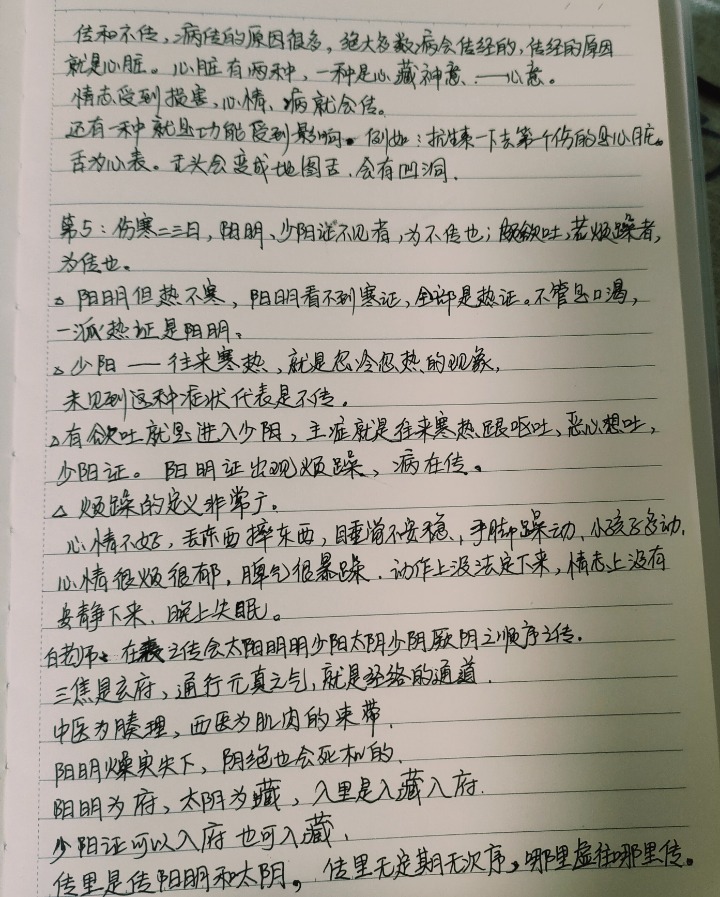 传和不传，病传的原因很多，绝大多数病会传经的，传经的原因
就是心脏。心脏有两种，一种是心藏神意、——心意。
情志受到损害，心情、病就会传。
还有一种就是功能受到影响。例如：抗生素一下去第一个伤的是心脏。
舌为心表。舌头会变成地图舌，会有凹洞.
第5：伤寒二三日，阳明、少阳证不见者，为不传也；欲吐，若烦躁者，
为传也。
△ 阳明但热不寒，阳明看不到寒证，全部是热证。不管是口渴，
一派热证是阳明。
△ 少阳——往来寒热，就是忽冷忽热的现象，
未见到这种症状代表是不传。
△有欲吐就是进入少阳，主症就是往来寒热跟呕吐、恶心想吐，
少阳证。阳明证出现烦躁，病在传。
△ 烦躁的定义非常广。
心情不好，丢东西摔东西，睡觉不安稳，手脚躁动，小孩子多动，
心情很烦很郁，脾气很暴躁．动作上没法定下来，情志上没有
安静下来、晚上失眠。
白老师：在表之传会太阳阳明少阳太阴少阴厥阴之顺序之传．
三焦是玄府，通行元真之气，就是经络的通道．
中医为腠理，西医为肌肉的束带．
阳明燥实失下，阴绝也会死机的．
阳明为府，太阴为藏，入里是入藏入府．
少阳证可以入府也可入藏．
传里是传阳明和太阴。传里无定期无次序，哪里虚往哪里传。